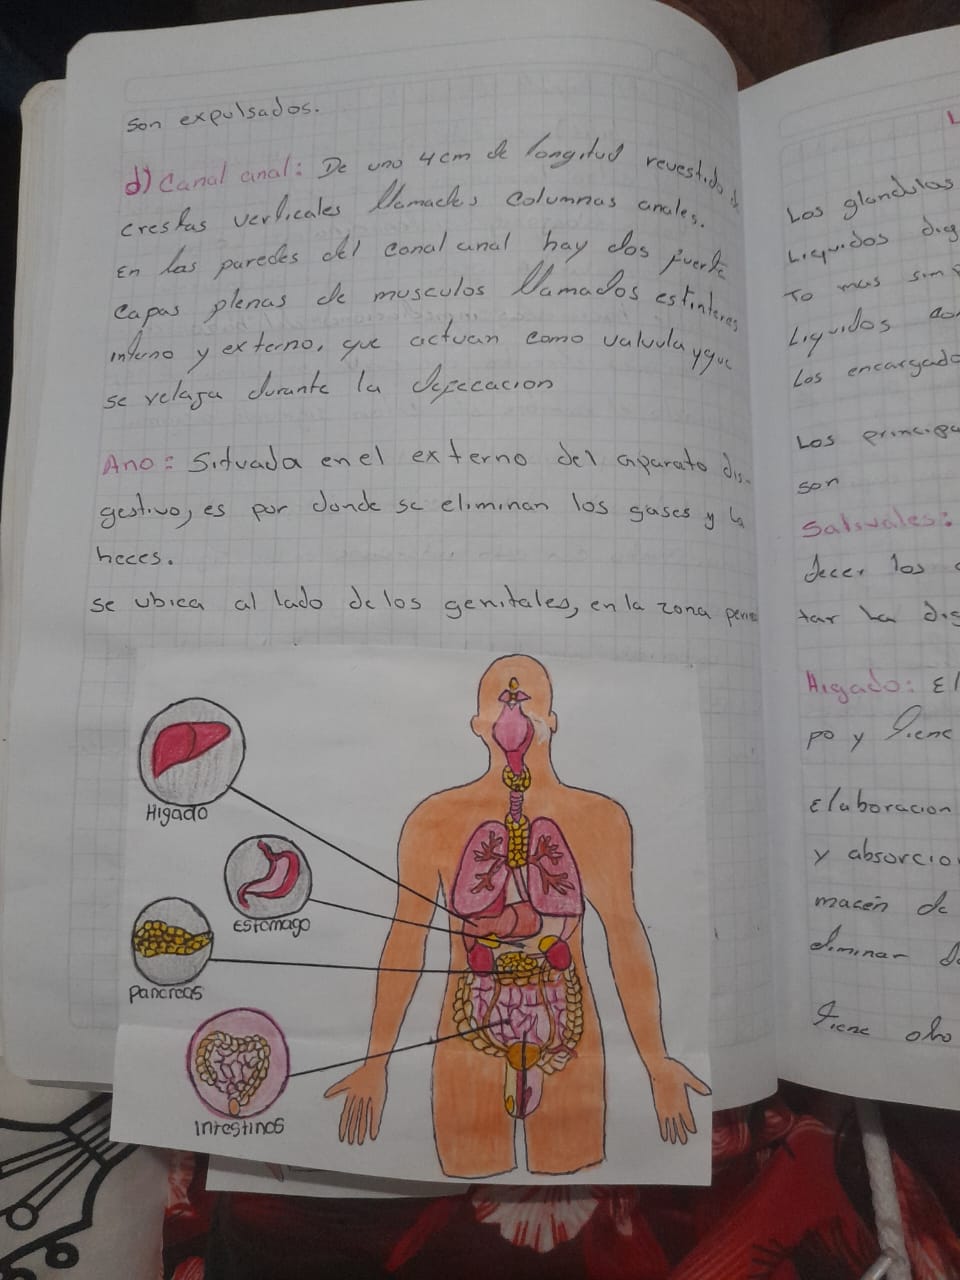 son expulsados.
d) Canal anal: De uno 4cm de longitud revestido d
crestas verticales llamadas columnas anales.
En las paredes del canal anal hay dos fuerte
capas plenas de musculos llamados estinteres
interno y externo, que actuan como valvula y que
se relaja durante la defecacion
Ano: Situada en el externo del aparato dis-
gestivo, es por donde se eliminan los gases y la
heces.
se ubica al lado de los genitales, en la zona perine
Higado
Estomago
Pancreas
Intestinos
L
Los glandulas
Liquidos dig
To mas simp
Liquidos con
Los encargado
Los principa
son
Salivales:
decer los
tar la dig
Higado: El
po y tiene
Elaboracion
y absorcio
macen de
eliminar d
tiene otro